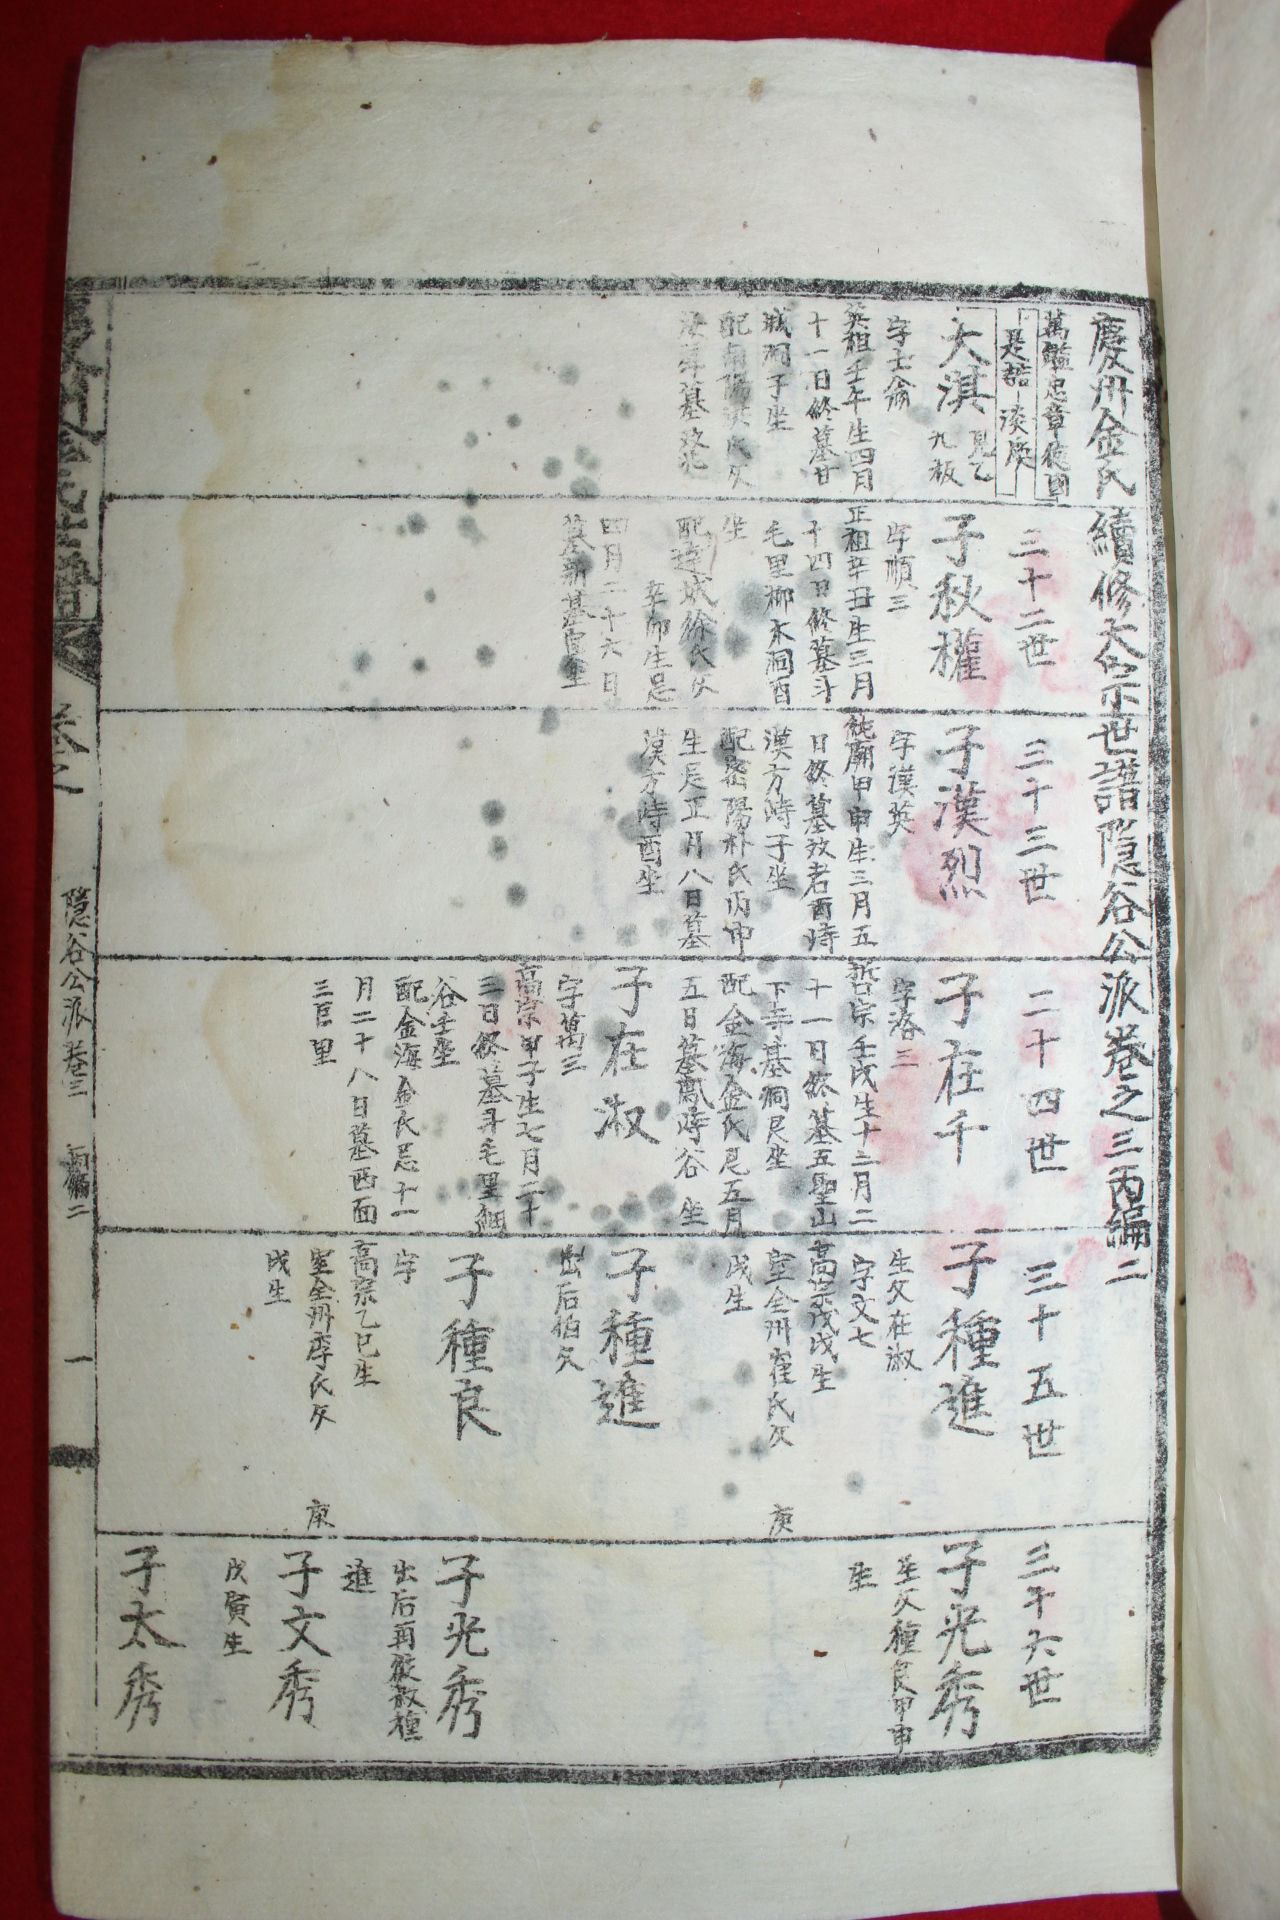 慶州金氏續修大宗世譜隱谷公派卷之三丙編二
萬鎰忠章德國
是誥 淡煥
大淇 見乙九板
字士侖
英祖壬午生四月
十一日終墓廿
城洞子坐
配南陽洪氏父
三十二世
子秋權
字順三
正祖辛丑生三月
十四日終墓斗
毛里柳木洞酉
坐
配達城徐氏父
辛卯生忌
四月二十六日
墓新基
三十三世
子漢烈
字漢英
純廟甲申生三月五
日終墓孜君酉峙
漢方峙子坐
配密陽朴氏丙申
生忌正月八日墓
漢方峙酉坐
二十四世
子在千
字洛三
哲宗壬戌生十二月二
十一日終墓五聖山
下寺基洞艮坐
配金海金氏忌五月
五日墓鳳峙谷 坐
子在淑
字萬三
高宗甲子生七月二十
三日終墓斗毛里細
谷壬坐
配金海金氏忌十一
月二十八日墓西面
三巨里
三十五世
子種進
生父在淑
字文七
高宗戊戌生
室全州崔氏父 庚
戌生
子種進
出后伯父
子種良
字
高宗乙巳生
室全州李氏父 庚
戌生
三十六世
子光秀
生父種良甲申
生
子光秀
出后再從叔種
進
子文秀
戊寅生
子太秀
慶州金氏世譜
卷之
隱谷公派卷三 丙編二
一